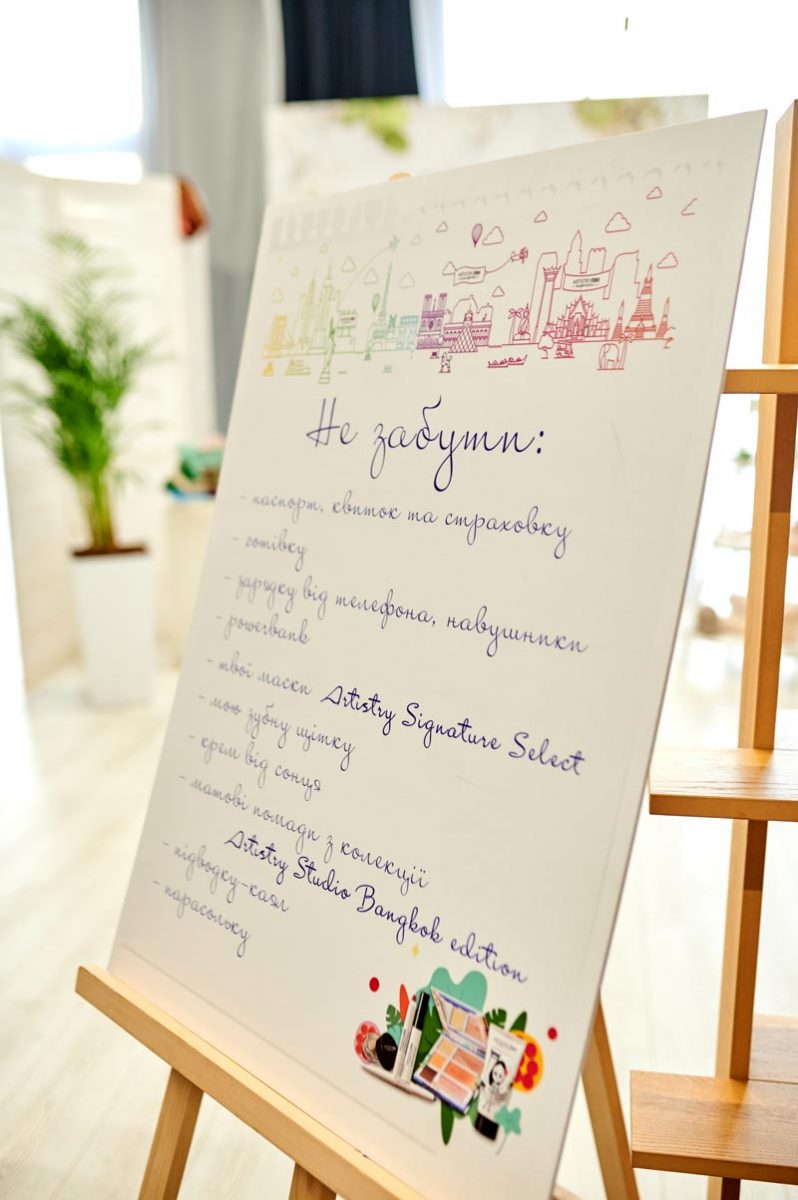 Не забути:
- паспорт, квиток та страховку
- готівку
- зарядку від телефона, навушники
- powerbank
- твої маски Artistry Signature Select
- мою зубну щітку
- крем від сонця
- матові помади з колекції
Artistry Studio Bangkok edition
- підводку-каял
- парасольку